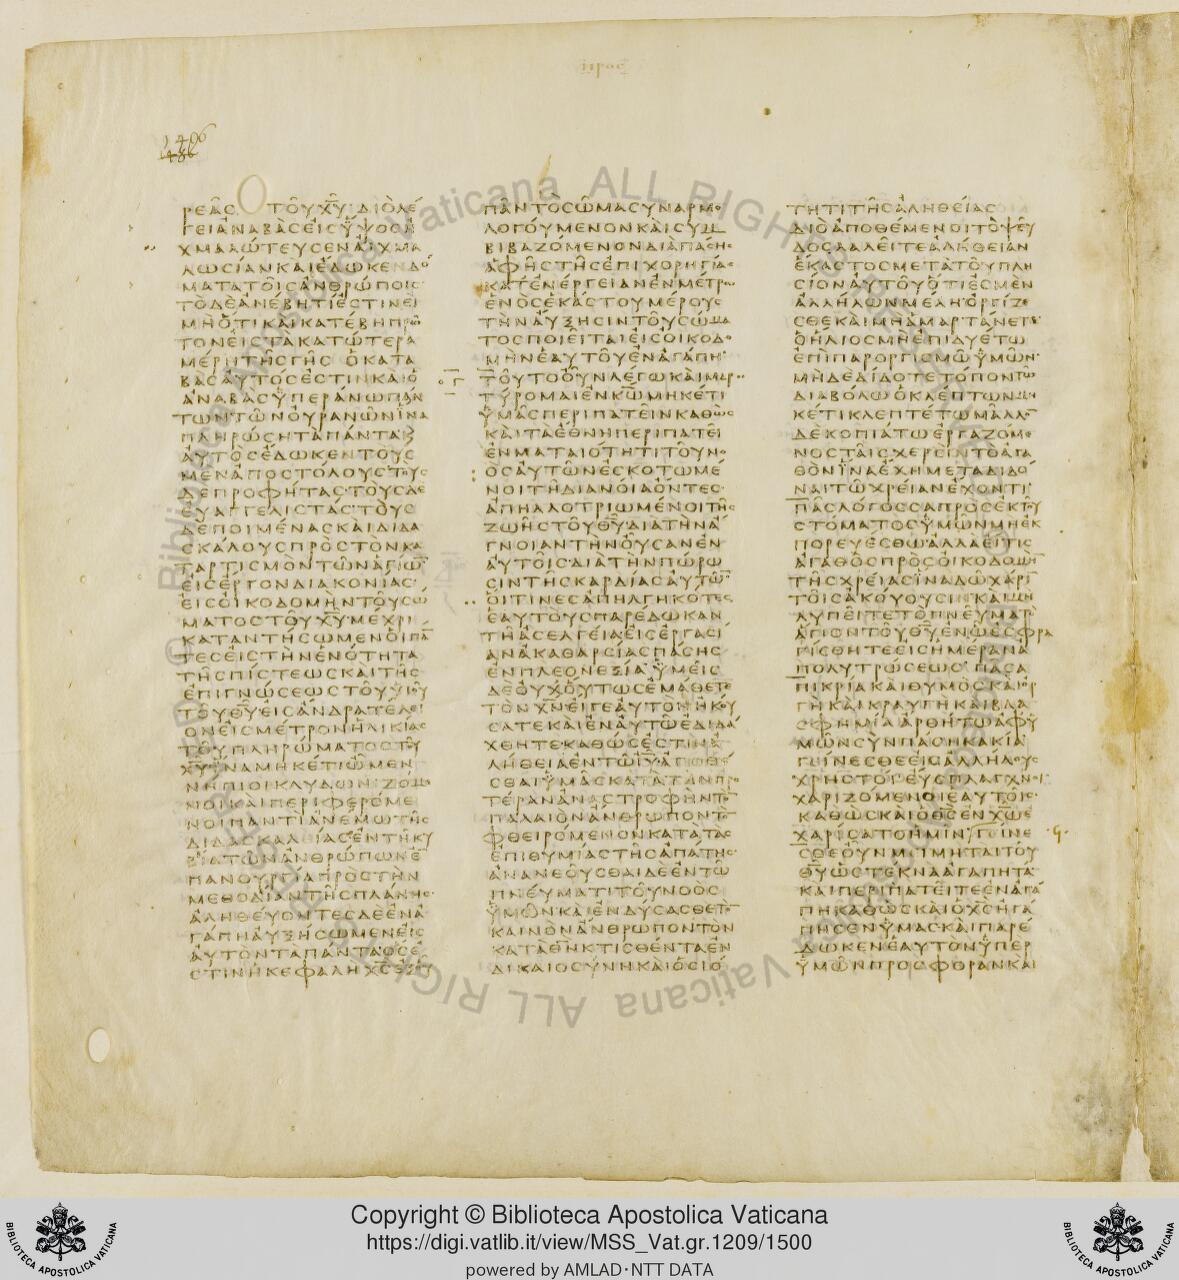 ΠΡΟΣ
ΡΕΑΣ ΤΟΥ ΧΥ ΔΙΟ ΛΕ
ΓΕΙ ΑΝΑΒΑΣ ΕΙΣ ΥΨΟΣ Η
ΧΜΑΛΩΤΕΥΣΕΝ ΑΙΧΜΑ
ΛΩΣΙΑΝ ΚΑΙ ΕΔΩΚΕΝ ΔΟ
ΜΑΤΑ ΤΟΙΣ ΑΝΘΡΩΠΟΙΣ
ΤΟ ΔΕ ΑΝΕΒΗ ΤΙ ΕΣΤΙΝ ΕΙ
ΜΗ ΟΤΙ ΚΑΙ ΚΑΤΕΒΗ ΠΡΩ
ΤΟΝ ΕΙΣ ΤΑ ΚΑΤΩΤΕΡΑ
ΜΕΡΗ ΤΗΣ ΓΗΣ Ο ΚΑΤΑ
ΒΑΣ ΑΥΤΟΣ ΕΣΤΙΝ ΚΑΙ Ο
ΑΝΑΒΑΣ ΥΠΕΡΑΝΩ ΠΑΝ
ΤΩΝ ΤΩΝ ΟΥΡΑΝΩΝ ΙΝΑ
ΠΛΗΡΩΣΗ ΤΑ ΠΑΝΤΑ Κ
ΑΥΤΟΣ ΕΔΩΚΕΝ ΤΟΥΣ
ΜΕΝ ΑΠΟΣΤΟΛΟΥΣ ΤΟΥΣ
ΔΕ ΠΡΟΦΗΤΑΣ ΤΟΥΣ ΔΕ
ΕΥΑΓΓΕΛΙΣΤΑΣ ΤΟΥΣ
ΔΕ ΠΟΙΜΕΝΑΣ ΚΑΙ ΔΙΔΑ
ΣΚΑΛΟΥΣ ΠΡΟΣ ΤΟΝ ΚΑ
ΤΑΡΤΙΣΜΟΝ ΤΩΝ ΑΓΙΩ
ΕΙΣ ΕΡΓΟΝ ΔΙΑΚΟΝΙΑΣ
ΕΙΣ ΟΙΚΟΔΟΜΗΝ ΤΟΥ ΣΩ
ΜΑΤΟΣ ΤΟΥ ΧΥ ΜΕΧΡΙ
ΚΑΤΑΝΤΗΣΩΜΕΝ ΟΙ ΠΑ
ΤΕΣ ΕΙΣ ΤΗΝ ΕΝΟΤΗΤΑ
ΤΗΣ ΠΙΣΤΕΩΣ ΚΑΙ ΤΗΣ
ΕΠΙΓΝΩΣΕΩΣ ΤΟΥ ΥΙΟΥ
ΤΟΥ ΘΥ ΕΙΣ ΑΝΔΡΑ ΤΕΛΕΙ
ΟΝ ΕΙΣ ΜΕΤΡΟΝ ΗΛΙΚΙΑΣ
ΤΟΥ ΠΛΗΡΩΜΑΤΟΣ ΤΟΥ
ΧΥ ΙΝΑ ΜΗΚΕΤΙ ΩΜΕΝ
ΝΗΠΙΟΙ ΚΛΥΔΩΝΙΖΟΜΕ
ΝΟΙ ΚΑΙ ΠΕΡΙΦΕΡΟΜΕ
ΝΟΙ ΠΑΝΤΙ ΑΝΕΜΩ ΤΗΣ
ΔΙΔΑΣΚΑΛΙΑΣ ΕΝ ΤΗ ΚΥ
ΒΙΑ ΤΩΝ ΑΝΘΡΩΠΩΝ Ε
ΠΑΝΟΥΡΓΙΑ ΠΡΟΣ ΤΗΝ
ΜΕΘΟΔΙΑΝ ΤΗΣ ΠΛΑΝΗΣ
ΑΛΗΘΕΥΟΝΤΕΣ ΔΕ ΕΝ Α
ΓΑΠΗ ΑΥΞΗΣΩΜΕΝ ΕΙΣ
ΑΥΤΟΝ ΤΑ ΠΑΝΤΑ ΟΣ Ε
ΣΤΙΝ Η ΚΕΦΑΛΗ ΧΣ ΕΞ ΟΥ
ΠΑΝ ΤΟ ΣΩΜΑ ΣΥΝΑΡΜΟ
ΛΟΓΟΥΜΕΝΟΝ ΚΑΙ ΣΥΜ
ΒΙΒΑΖΟΜΕΝΟΝ ΔΙΑ ΠΑΣΗΣ
ΑΦΗΣ ΤΗΣ ΕΠΙΧΟΡΗΓΙΑΣ
ΚΑΤ ΕΝΕΡΓΕΙΑΝ ΕΝ ΜΕΤΡΩ
ΕΝΟΣ ΕΚΑΣΤΟΥ ΜΕΡΟΥΣ
ΤΗΝ ΑΥΞΗΣΙΝ ΤΟΥ ΣΩΜΑ
ΤΟΣ ΠΟΙΕΙΤΑΙ ΕΙΣ ΟΙΚΟΔΟ
ΜΗΝ ΕΑΥΤΟΥ ΕΝ ΑΓΑΠΗ
ΤΟΥΤΟ ΟΥΝ ΛΕΓΩ ΚΑΙ ΜΑΡ
ΤΥΡΟΜΑΙ ΕΝ ΚΩ ΜΗΚΕΤΙ
ΥΜΑΣ ΠΕΡΙΠΑΤΕΙΝ ΚΑΘΩΣ
ΚΑΙ ΤΑ ΕΘΝΗ ΠΕΡΙΠΑΤΕΙ
ΕΝ ΜΑΤΑΙΟΤΗΤΙ ΤΟΥ ΝΟ
ΟΣ ΑΥΤΩΝ ΕΣΚΟΤΩΜΕ
ΝΟΙ ΤΗ ΔΙΑΝΟΙΑ ΟΝΤΕΣ
ΑΠΗΛΛΟΤΡΙΩΜΕΝΟΙ ΤΗΣ
ΖΩΗΣ ΤΟΥ ΘΥ ΔΙΑ ΤΗΝ Α
ΓΝΟΙΑΝ ΤΗΝ ΟΥΣΑΝ ΕΝ
ΑΥΤΟΙΣ ΔΙΑ ΤΗΝ ΠΩΡΩ
ΣΙΝ ΤΗΣ ΚΑΡΔΙΑΣ ΑΥΤΩ
ΟΙΤΙΝΕΣ ΑΠΗΛΓΗΚΟΤΕΣ
ΕΑΥΤΟΥΣ ΠΑΡΕΔΩΚΑΝ
ΤΗ ΑΣΕΛΓΕΙΑ ΕΙΣ ΕΡΓΑΣΙ
ΑΝ ΑΚΑΘΑΡΣΙΑΣ ΠΑΣΗΣ
ΕΝ ΠΛΕΟΝΕΞΙΑ ΥΜΕΙΣ
ΔΕ ΟΥΧ ΟΥΤΩΣ ΕΜΑΘΕΤΕ
ΤΟΝ ΧΝ ΕΙ ΓΕ ΑΥΤΟΝ ΗΚΟΥ
ΣΑΤΕ ΚΑΙ ΕΝ ΑΥΤΩ ΕΔΙΔΑ
ΧΘΗΤΕ ΚΑΘΩΣ ΕΣΤΙΝ Α
ΛΗΘΕΙΑ ΕΝ ΤΩ ΙΥ ΑΠΟΘΕ
ΣΘΑΙ ΥΜΑΣ ΚΑΤΑ ΤΗΝ ΠΡΟ
ΤΕΡΑΝ ΑΝΑΣΤΡΟΦΗΝ ΤΟ
ΠΑΛΑΙΟΝ ΑΝΘΡΩΠΟΝ ΤΟ
ΦΘΕΙΡΟΜΕΝΟΝ ΚΑΤΑ ΤΑΣ
ΕΠΙΘΥΜΙΑΣ ΤΗΣ ΑΠΑΤΗΣ
ΑΝΑΝΕΟΥΣΘΑΙ ΔΕ ΕΝ ΤΩ
ΠΝΕΥΜΑΤΙ ΤΟΥ ΝΟΟΣ
ΥΜΩΝ ΚΑΙ ΕΝΔΥΣΑΣΘΕ ΤΟ
ΚΑΙΝΟΝ ΑΝΘΡΩΠΟΝ ΤΟΝ
ΚΑΤΑ ΘΝ ΚΤΙΣΘΕΝΤΑ ΕΝ
ΔΙΚΑΙΟΣΥΝΗ ΚΑΙ ΟΣΙΟ
ΤΗΤΙ ΤΗΣ ΑΛΗΘΕΙΑΣ
ΔΙΟ ΑΠΟΘΕΜΕΝΟΙ ΤΟ ΨΕΥ
ΔΟΣ ΛΑΛΕΙΤΕ ΑΛΗΘΕΙΑΝ
ΕΚΑΣΤΟΣ ΜΕΤΑ ΤΟΥ ΠΛΗ
ΣΙΟΝ ΑΥΤΟΥ ΟΤΙ ΕΣΜΕΝ
ΑΛΛΗΛΩΝ ΜΕΛΗ ΟΡΓΙΖΕ
ΣΘΕ ΚΑΙ ΜΗ ΑΜΑΡΤΑΝΕΤΕ
Ο ΗΛΙΟΣ ΜΗ ΕΠΙΔΥΕΤΩ
ΕΠΙ ΠΑΡΟΡΓΙΣΜΩ ΥΜΩΝ
ΜΗΔΕ ΔΙΔΟΤΕ ΤΟΠΟΝ ΤΩ
ΔΙΑΒΟΛΩ Ο ΚΛΕΠΤΩΝ ΜΗ
ΚΕΤΙ ΚΛΕΠΤΕΤΩ ΜΑΛΛΟ
ΔΕ ΚΟΠΙΑΤΩ ΕΡΓΑΖΟΜΕ
ΝΟΣ ΤΑΙΣ ΧΕΡΣΙΝ ΤΟ ΑΓΑ
ΘΟΝ ΙΝΑ ΕΧΗ ΜΕΤΑΔΙΔΟ
ΝΑΙ ΤΩ ΧΡΕΙΑΝ ΕΧΟΝΤΙ
ΠΑΣ ΛΟΓΟΣ ΣΑΠΡΟΣ ΕΚ ΤΟΥ
ΣΤΟΜΑΤΟΣ ΥΜΩΝ ΜΗ ΕΚ
ΠΟΡΕΥΕΣΘΩ ΑΛΛΑ ΕΙ ΤΙΣ
ΑΓΑΘΟΣ ΠΡΟΣ ΟΙΚΟΔΟΜΗ
ΤΗΣ ΧΡΕΙΑΣ ΙΝΑ ΔΩ ΧΑΡΙ
ΤΟΙΣ ΑΚΟΥΟΥΣΙΝ ΚΑΙ ΜΗ
ΛΥΠΕΙΤΕ ΤΟ ΠΝΕΥΜΑ ΤΟ
ΑΓΙΟΝ ΤΟΥ ΘΥ ΕΝ Ω ΕΣΦΡΑ
ΓΙΣΘΗΤΕ ΕΙΣ ΗΜΕΡΑΝ Α
ΠΟΛΥΤΡΩΣΕΩΣ ΠΑΣΑ
ΠΙΚΡΙΑ ΚΑΙ ΘΥΜΟΣ ΚΑΙ ΟΡ
ΓΗ ΚΑΙ ΚΡΑΥΓΗ ΚΑΙ ΒΛΑ
ΣΦΗΜΙΑ ΑΡΘΗΤΩ ΑΦ Υ
ΜΩΝ ΣΥΝ ΠΑΣΗ ΚΑΚΙΑ
ΓΕΙΝΕΣΘΕ ΕΙΣ ΑΛΛΗΛΟΥΣ
ΧΡΗΣΤΟΙ ΕΥΣΠΛΑΓΧΝΟΙ
ΧΑΡΙΖΟΜΕΝΟΙ ΕΑΥΤΟΙΣ
ΚΑΘΩΣ ΚΑΙ Ο ΘΣ ΕΝ ΧΩ Ε
ΧΑΡΙΣΑΤΟ ΗΜΙΝ ΓΕΙΝΕ
ΣΘΕ ΟΥΝ ΜΙΜΗΤΑΙ ΤΟΥ
ΘΥ ΩΣ ΤΕΚΝΑ ΑΓΑΠΗΤΑ
ΚΑΙ ΠΕΡΙΠΑΤΕΙΤΕ ΕΝ ΑΓΑ
ΠΗ ΚΑΘΩΣ ΚΑΙ Ο ΧΣ ΗΓΑ
ΠΗΣΕΝ ΥΜΑΣ ΚΑΙ ΠΑΡΕ
ΔΩΚΕΝ ΕΑΥΤΟΝ ΥΠΕΡ
ΥΜΩΝ ΠΡΟΣΦΟΡΑΝ ΚΑΙ
Copyright © Biblioteca Apostolica Vaticana
https://digi.vatlib.it/view/MSS_Vat.gr.1209/1500
powered by AMLAD·NTT DATA
BIBLIOTECA APOSTOLICA VATICANA
BIBLIOTECA APOSTOLICA VATICANA